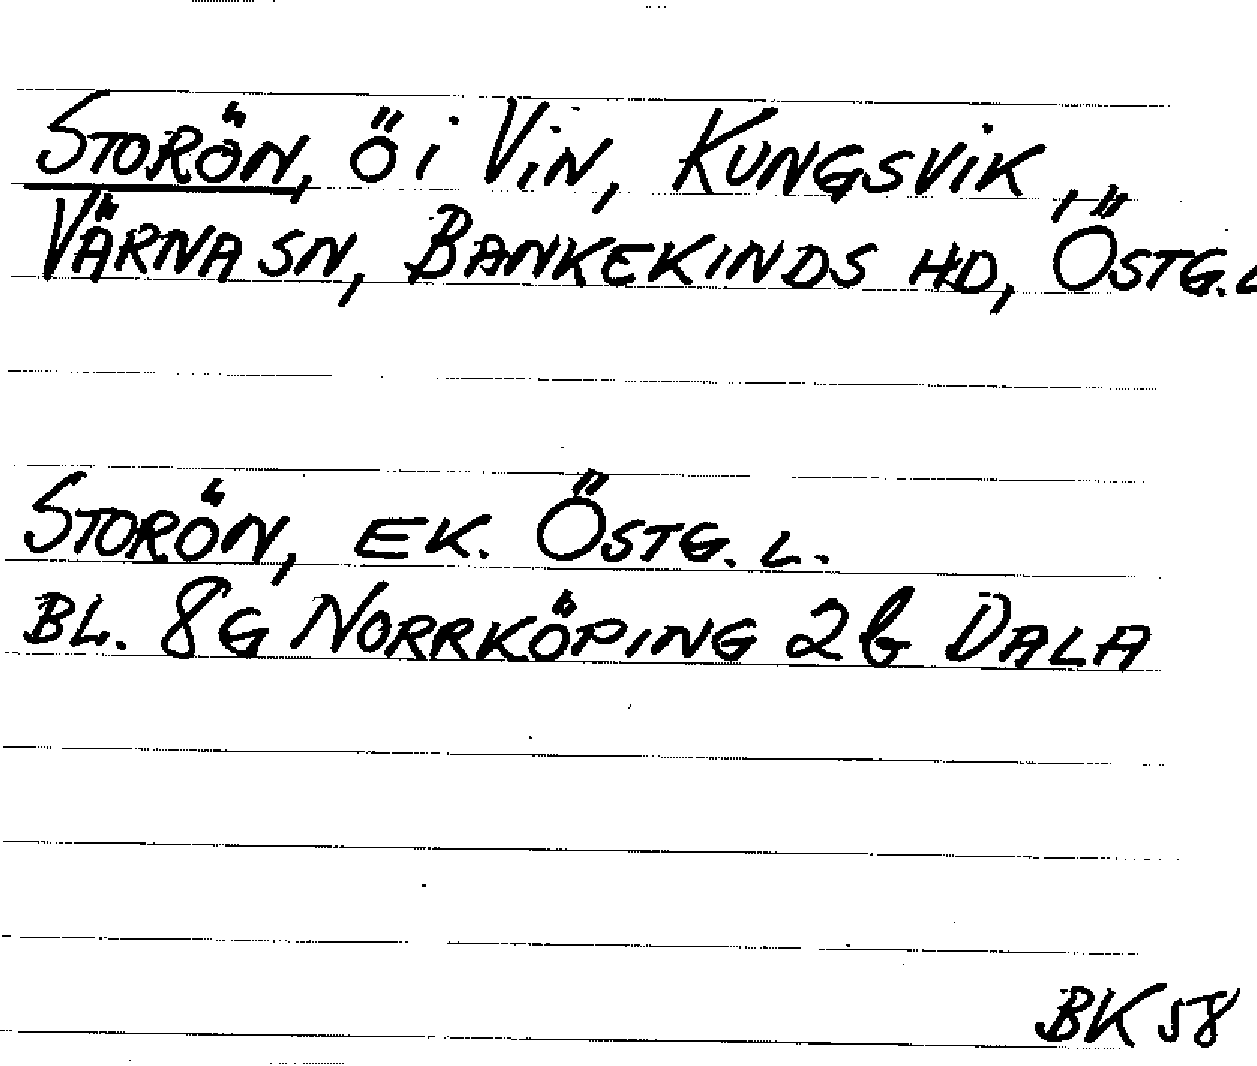 STORÖN, Ö i VIN, KUNGSVIK,
VÄRNA SN, BANKEKINDS HD, ÖSTG.L
STORÖN, EK. ÖSTG. L.
BL. 8G NORRKÖPING 2b DALA
BK 58